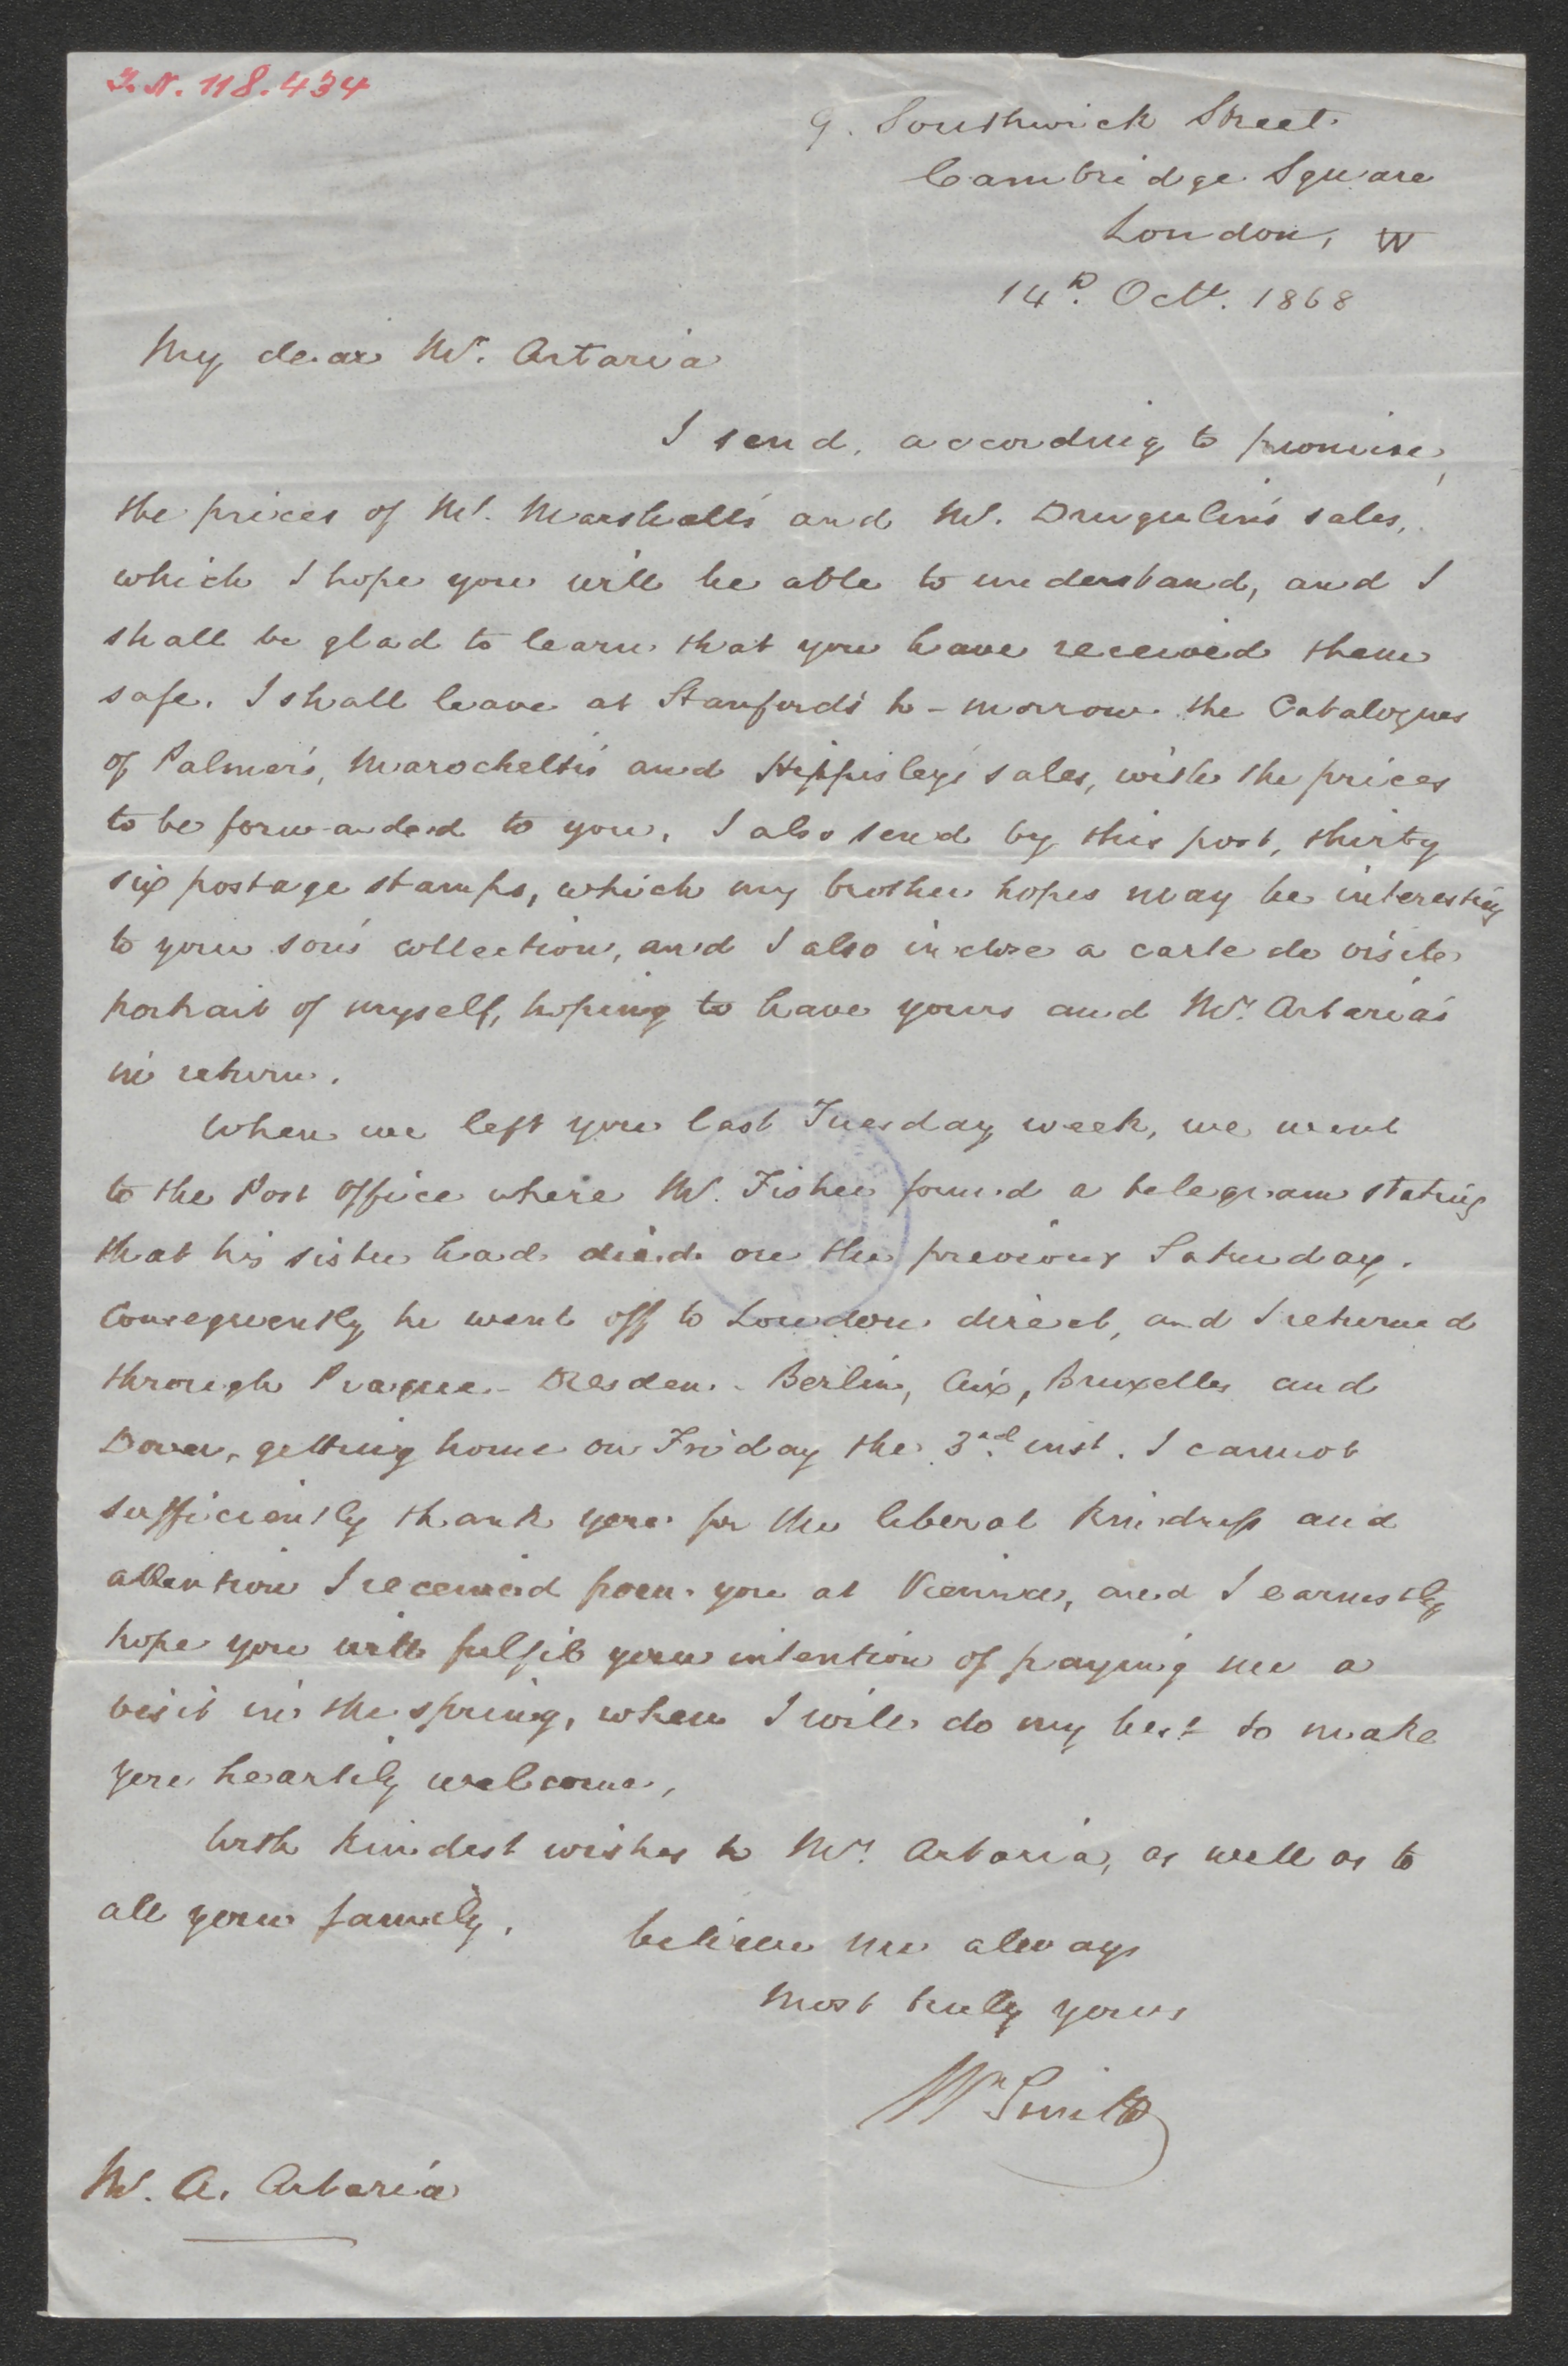 I.N. 118.434
9. Southwick Street.
Cambridge Square
London, W
14th. Octr. 1868
My dear Mr. Artaria
I send, according to promise,
the prices of Mr. Marshall's and Mr. Drugulin's sales,
which I hope you will be able to understand, and I
shall be glad to learn that you have received them
safe. I shall leave at Stanford's to-morrow the Catalogues
of Palmer's, Marochetti's and Hippisley's sales, with the prices
to be forwarded to you. I also send by this post, thirty
six postage stamps, which my brother hopes may be interesting
to your son's collection, and I also inclose a carte de visite
portrait of myself, hoping to have yours and Mrs. Artaria's
in return.
When we left you last Tuesday week, we went
to the Post Office where Mr. Fisher found a telegram stating
that his sister had died on the previous Saturday.
Consequently he went off to London direct, and I returned
through Prague - Dresden - Berlin, Aix, Bruxelles and
Dover, getting home on Friday the 3rd. inst. I cannot
sufficiently thank you for the liberal kindness and
attention I received from you at Vienna, and I earnestly
hope you will fulfil your intention of paying me a
visit in the spring, when I will do my best to make
you heartily welcome,
With kindest wishes to Mrs. Artaria, as well as to
all your family,
believe me always
Most truly yours
Wm Smith
Mr. A. Artaria